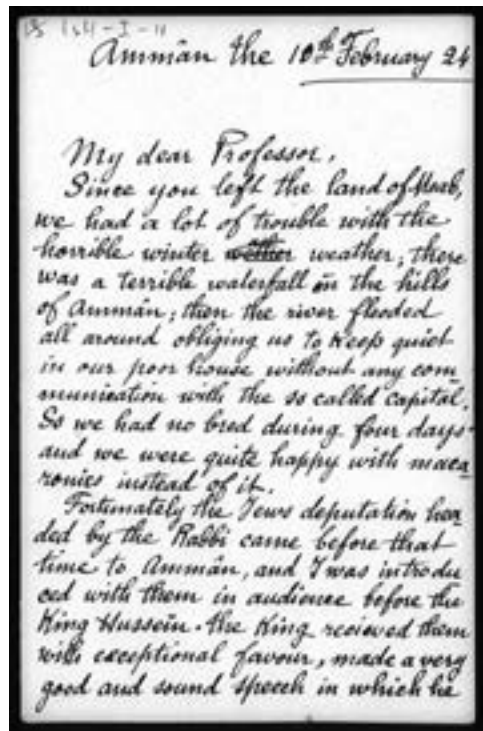 Ammân the 10th February 24
My dear Professor,
Since you left the land of Moab,
we had a lot of trouble with the
horrible winter wether weather; there
was a terrible waterfall in the hills
of Ammân; then the river flooded
all around obliging us to keep quiet
in our poor house without any com
munication with the so called capital.
So we had no bred during four days
and we were quite happy with maca
ronies instead of it.
Fortunately the Jews deputation hea
ded by the Rabbi came before that
time to Ammân, and I was introdu
ced with them in audience before the
King Hussein. the King recieved them
with exceptional favour, made a very
good and sound speech in which he